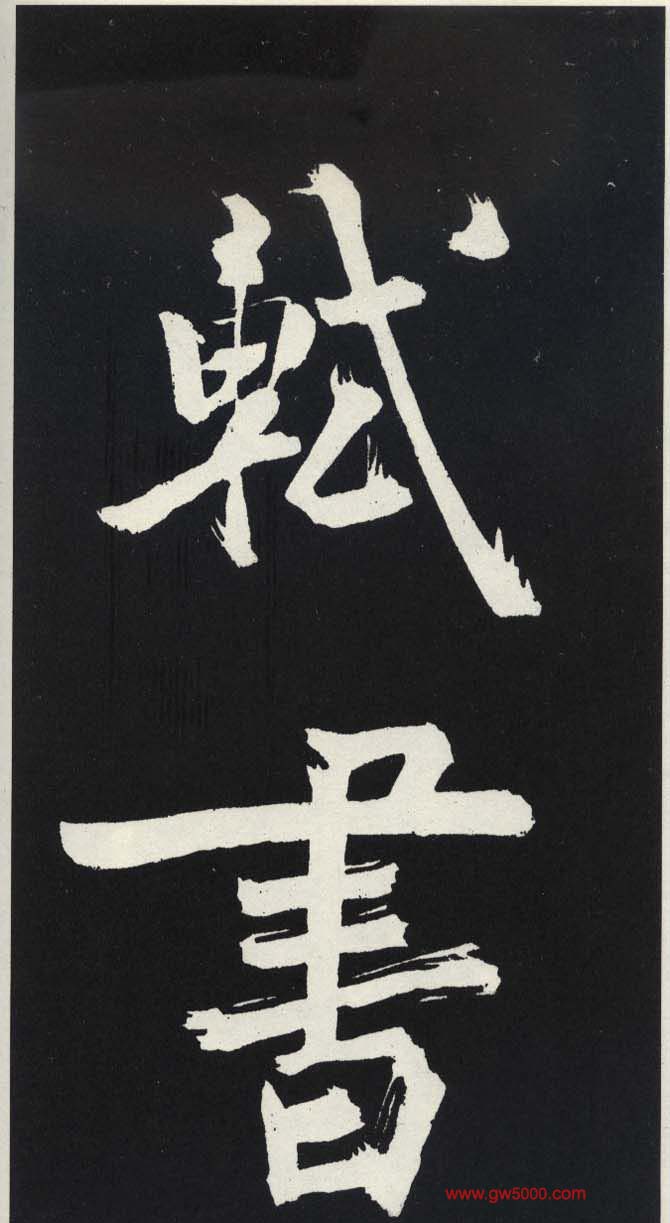 軾書
www.gw5000.com